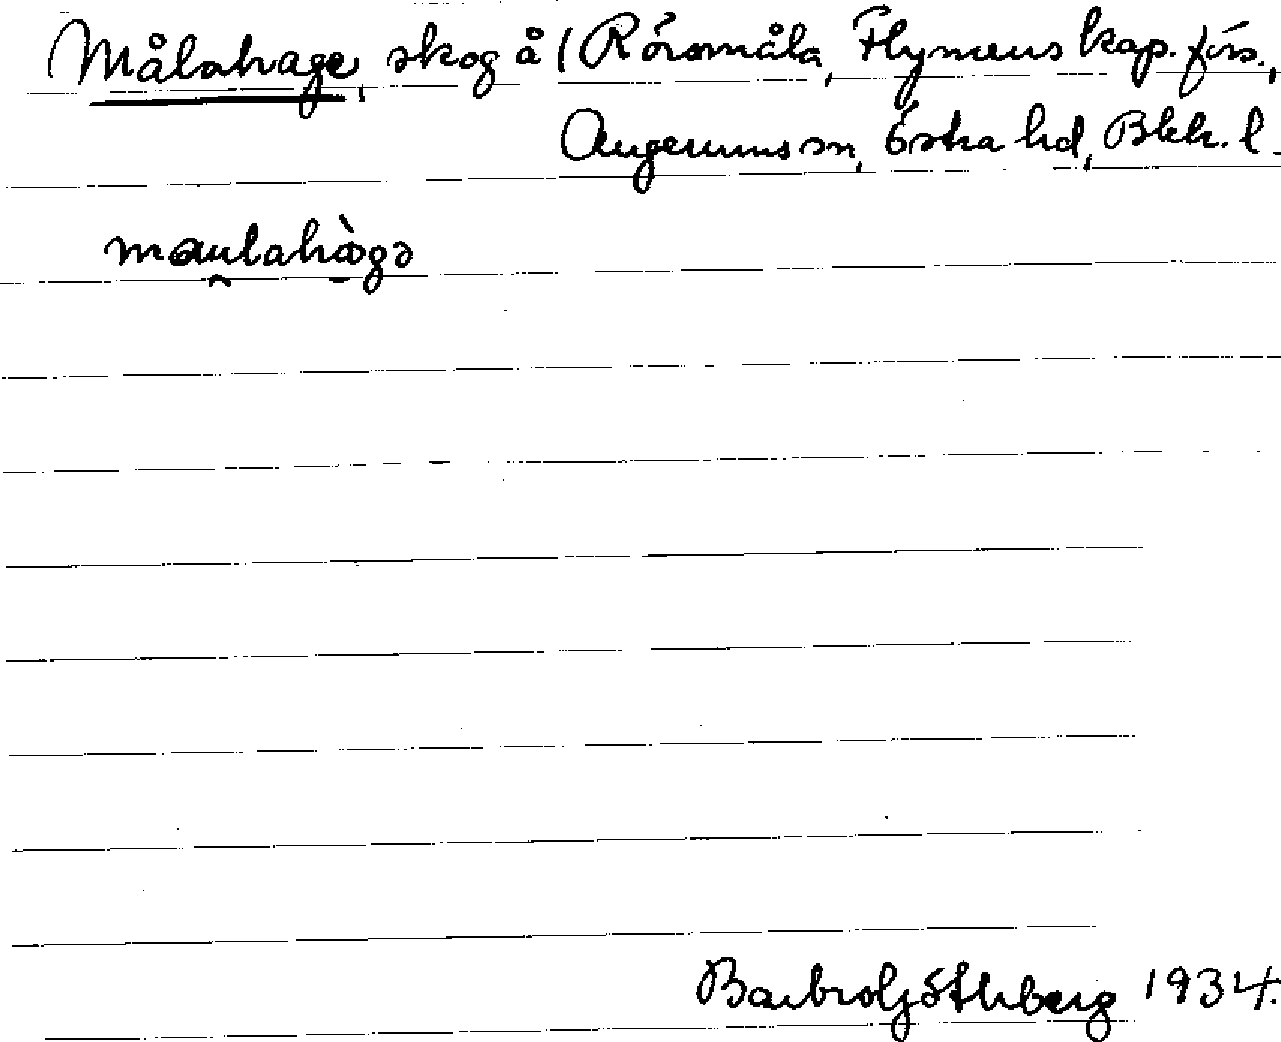 Målahage, skog å (Rörsmåla, Flymens kap. förs.,
Augerums sn, Östra hd, Blek. l.
maulahàgə
Barbro Göthberg 1934.